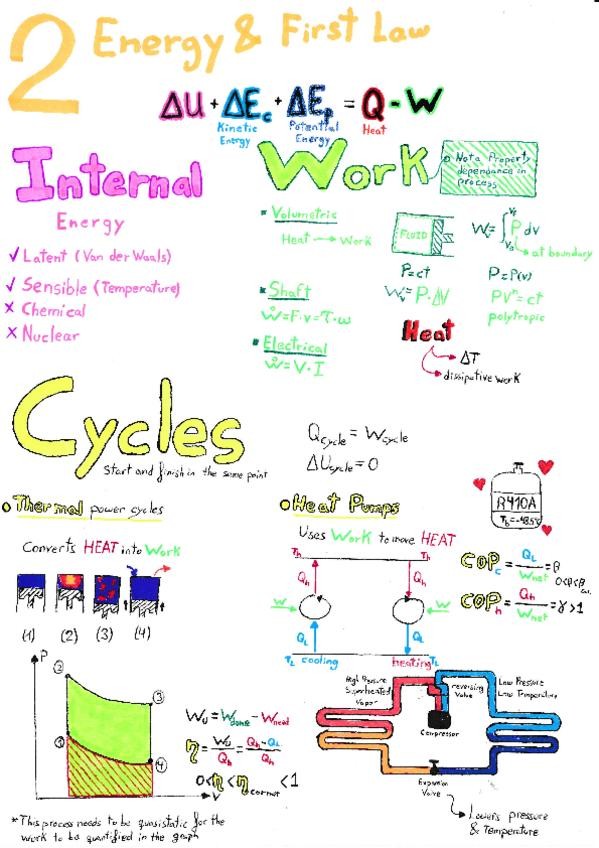 2 Energy & First Law
ΔU + ΔEc + ΔEp = Q - W
Kinetic Energy
Potential Energy
Heat
Internal
Energy
✓ Latent (Van der Waals)
✓ Sensible (Temperature)
✗ Chemical
✗ Nuclear
Work
Not a Property
dependance in
process
Volumetric
Heat → Work
FLUID
Wv = ∫ P dv
at boundary
P=ct
Wv = P·ΔV
P=P(v)
PVⁿ=ct
polytropic
Shaft
Ẇ=F·v=T·ω
Electrical
Ẇ=V·I
Heat
ΔT
dissipative work
Cycles
Start and finish in the same point
Qcycle = Wcycle
ΔUcycle=0
R410A
Thermal power cycles
Converts HEAT into Work
(1) (2) (3) (4)
P
2
3
4
V
Wu = Wdone - Wneed
η = Wu/Qh = Qh-QL/Qh
0<η<ηcarnot<1
*This process needs to be quasistatic for the
work to be quantified in the graph
Heat Pumps
Uses Work to move HEAT
Th
Th
Qh
Qh
W
W
QL
QL
TL cooling
heating TL
COPc = QL/Wnet = β
COPh = Qh/Wnet = γ>1
High Pressure
Superheated
Vapor
reversing
Valve
Low Pressure
Low Temperature
Compressor
Expansion
Valve
Lowers pressure
& Temperature